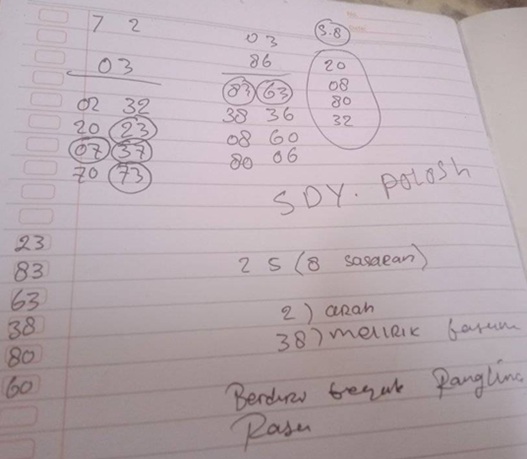 7 2
03
02 32
20 23
07 37
70 73
03
86
83 63
38 36
08 60
80 06
S.8
20
08
80
32
SDY. POLOSH
23
83
63
38
80
60
2 S (8 sasaran)
2) arah
38) MELIRIK
Rangling
Rasu